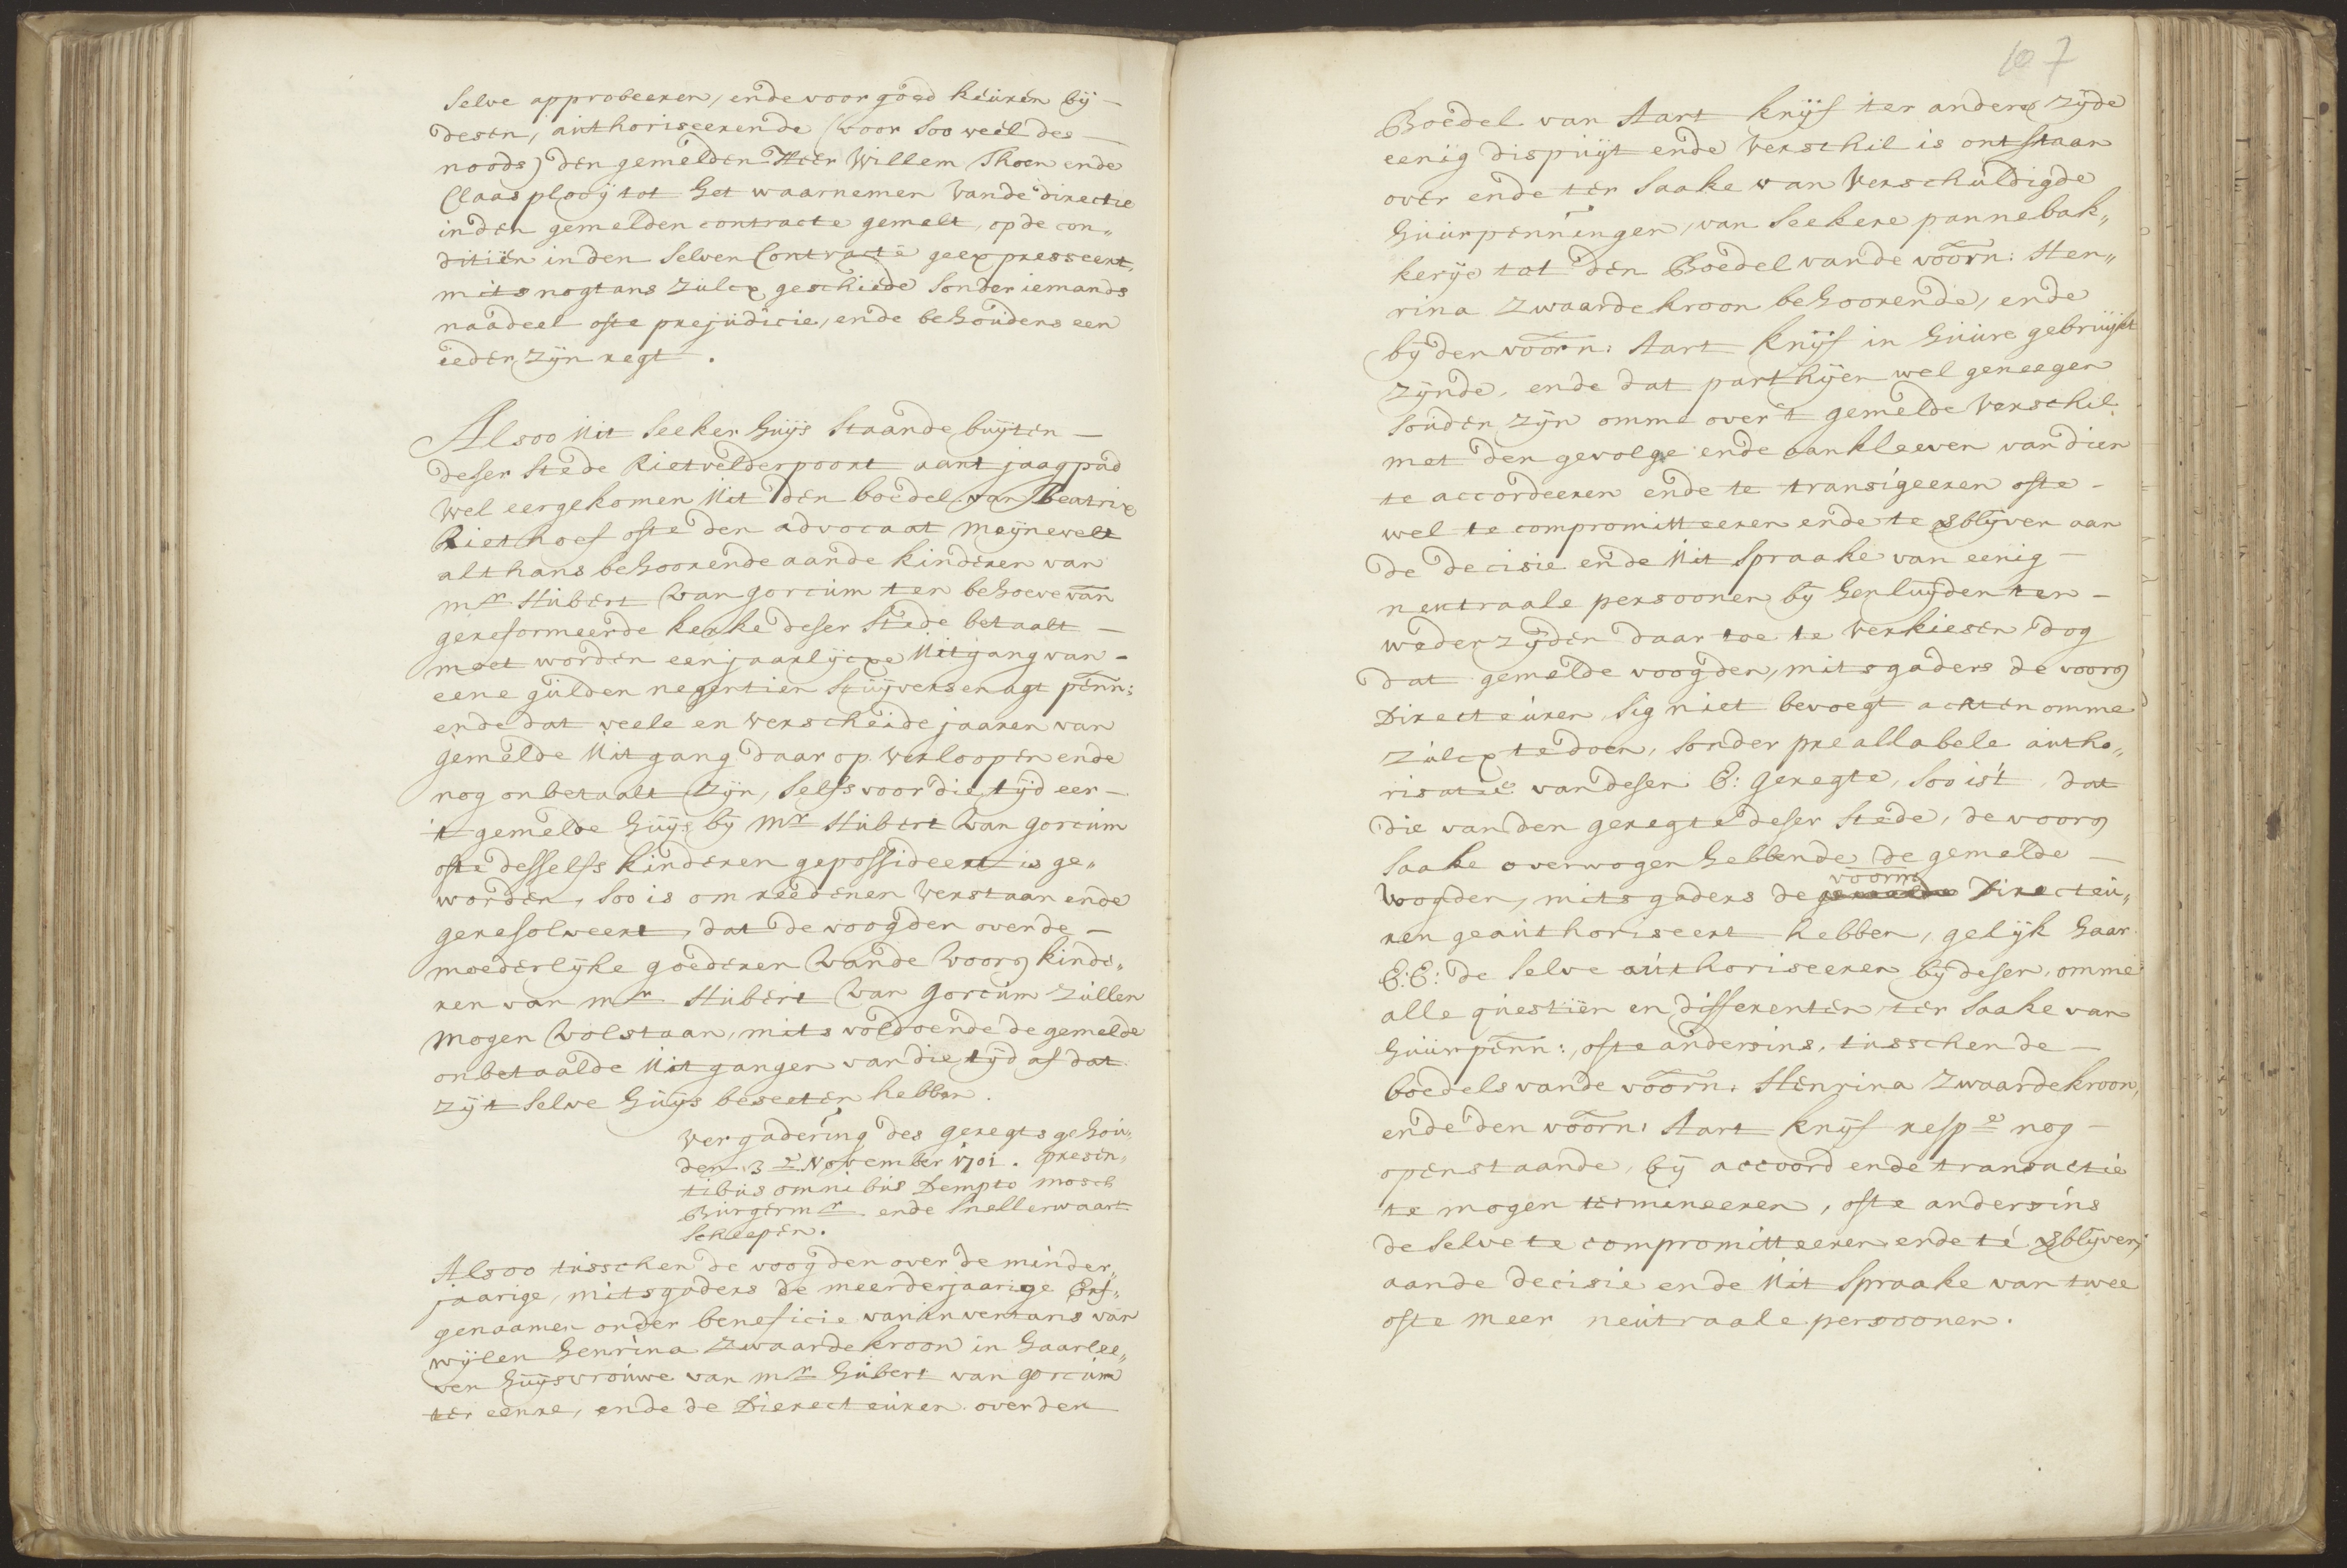 selve approbeeren, ende voor goed keuren bij
desen, authoriseerende (voor soo veel des
noods) den gemelden Heer Willem Thoen ende
Claas plooij tot het waarnemen vande directie
inden gemelden contracte gemelt, op de con„
ditiën inden selven Contracte geexpresseert,
mits nogtans zulcx geschiede sonder iemands
naadeel ofte prejudicie, ende behoudens een
ieder zijn regt.
Alsoo uit seeker huijs staande buijten
deser stede Rietvelderpoort aant jaagpad
wel eer gekomen uit den boedel van Beatrix
Riethoef ofte den advocaat Meijnewelt
althans behoorende aande kinderen van
mr Hubert van gorcum ten behoeve van
gereformeerde kerke deser stede betaalt
moet worden een jaarlijcxe uitgang van
eene gulden negentien stuijvers en agt penn:
ende dat veele en verscheide jaaren van
gemelde uitgang daar op verloopen ende
nog onbetaalt zijn, selfs voor die tijd eer
't gemelde huijs bij mr Hubert van gorcum
ofte desselfs kinderen gepossideert is ge„
worden, soo is om reedenen verstaan ende
geresolveert, dat de voogden over de
moederlijke goederen vande voorn kinde„
ren van mr Hubert van gorcum zullen
mogen volstaan, mits voldoende de gemelde
onbetaalde uitgangen van die tijd af dat
zij 't selve huijs beseeten hebben.
vergadering des geregts gehou„
den 3e November 1701. presen„
tibus omnibus Dempto mosch
Burgermr ende snellerwaart
scheepen.
Alsoo tusschen de voogden over de minder„
jaarige, mitsgaders de meerderjaarige Erf„
genaamen onder beneficie van inventaris van
wijlen henrina zwaardekroon in haar lee„
ven huijsvrouwe van mr hubert van gorcum
ter eenre, ende de Dierecteuren over den
107
Boedel van Aart Knijf ter andere zijde
eenig dispuijt ende verschil is ontstaan
over ende ter saake van verschuldigde
huurpenningen, van seekere pannebak„
kerije tot den Boedel vande voorn: Hen„
rina zwaardekroon behoorende, ende
bij den voorn: Aart Knijf in huure gebruijkt
zijnde, ende dat parthijen wel geneegen
souden zijn omme over 't gemelde verschil
met den gevolge ende aankleeven van dien
te accordeeren ende te transigeeren ofte
wel te compromitteeren ende te verblijven aan
de decisie ende uitspraake van eenig
neutraale persoonen bij henluijden ten
wederzijden daar toe te verkiesen, dog
dat gemelde voogden, mitsgaders de voorn
Directeuren sig niet bevoegt achten omme
zulcx te doen, sonder preallabele autho„
risatie van desen E: geregte, soo is't, dat
die vanden geregte deser stede, de voorn
saake overwogen hebbende de gemelde
voogden, mitsgaders de voorn Directeu„
ren geauthoriseert hebben, gelijk haar
E:E: de selve authoriseeren bij desen, omme
alle questiën en differenten ter saake van
huurpenn:, ofte andersins, tusschen de
boedels vande voorn: Henrina zwaardekroon,
ende den voorn: Aart Knijf respe nog
openstaande, bij accoord ende transactie
te mogen termineeren, ofte andersins
de selve te compromitteeren ende te verblijven
aande decisie ende uitspraake van twee
ofte meer neutraale persoonen.